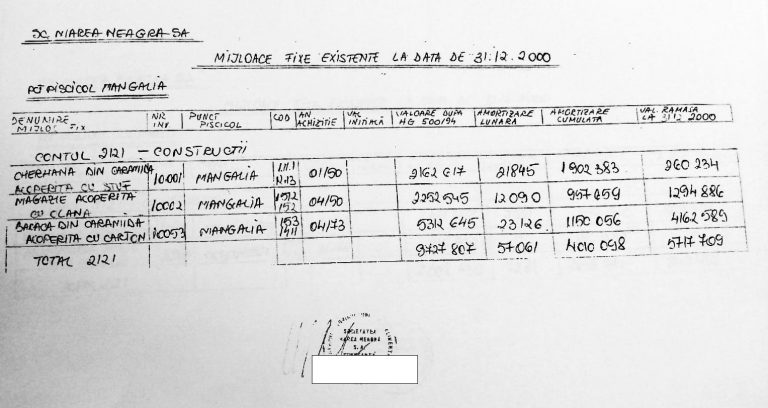 SC MAREA NEAGRA SA
MIJLOACE FIXE EXISTENTE LA DATA DE 31.12.2000
PCT PISCICOL MANGALIA
DENUMIRE MIJLOC FIX NR INV PUNCT PISCICOL COD AN ACHIZITIE VAL INITIALĂ VALOARE DUPA HG 500/94 AMORTIZARE LUNARA AMORTIZARE CUMULATA VAL RAMASA LA 31 12 2000
CONTUL 2121 - CONSTRUCTII
CHERHANA DIN CARAMIDA ACOPERITA CU STUF 10001 MANGALIA 01/50 2162 617 21845 1902 383 260 234
MAGAZIE ACOPERITA CU OLANA 10002 MANGALIA 1512 152 04/50 2252 545 12 090 957 659 1294 886
BARACA DIN CARAMIDA ACOPERITA CU CARTON 10053 MANGALIA 153 04/73 5312 645 23 126 1150 056 4162 589
TOTAL 2121 9727 807 57 061 4010 098 5717 709
SOCIETATEA
MAREA NEAGRA
S.A.